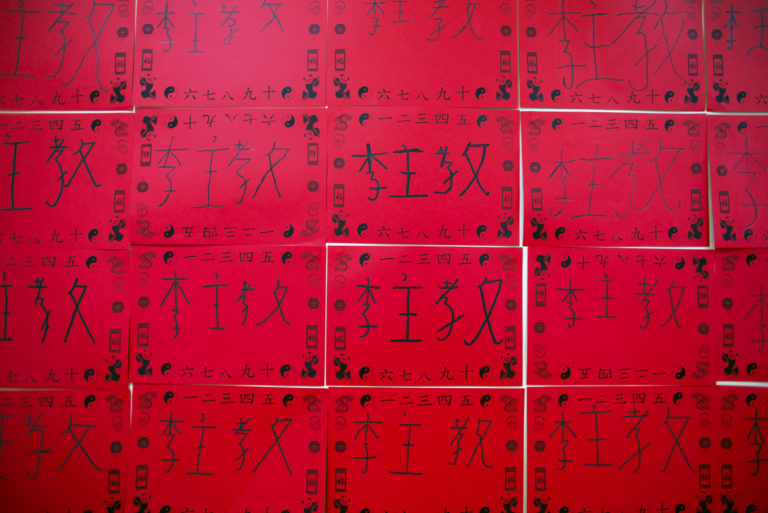 主教 李主教 李主教 李主教 李主
七八九十 六七八九十 六七八九十 六七八九十 六
二三四五 六七八九十 一二三四五 一二三四五 一二
主教 李主教 李主教 李主教 李
七八九十 一二三四五 六七八九十 六七八九十 六
二三四五 一二三四五 一二三四五 六七八九十
主教 李主教 李主教 李主教 李
七八九十 六七八九十 六七八九十 一二三四五
二三四五 一二三四五 一二三四五 一二三四五 一
教 李主教 李主教 李主教 李